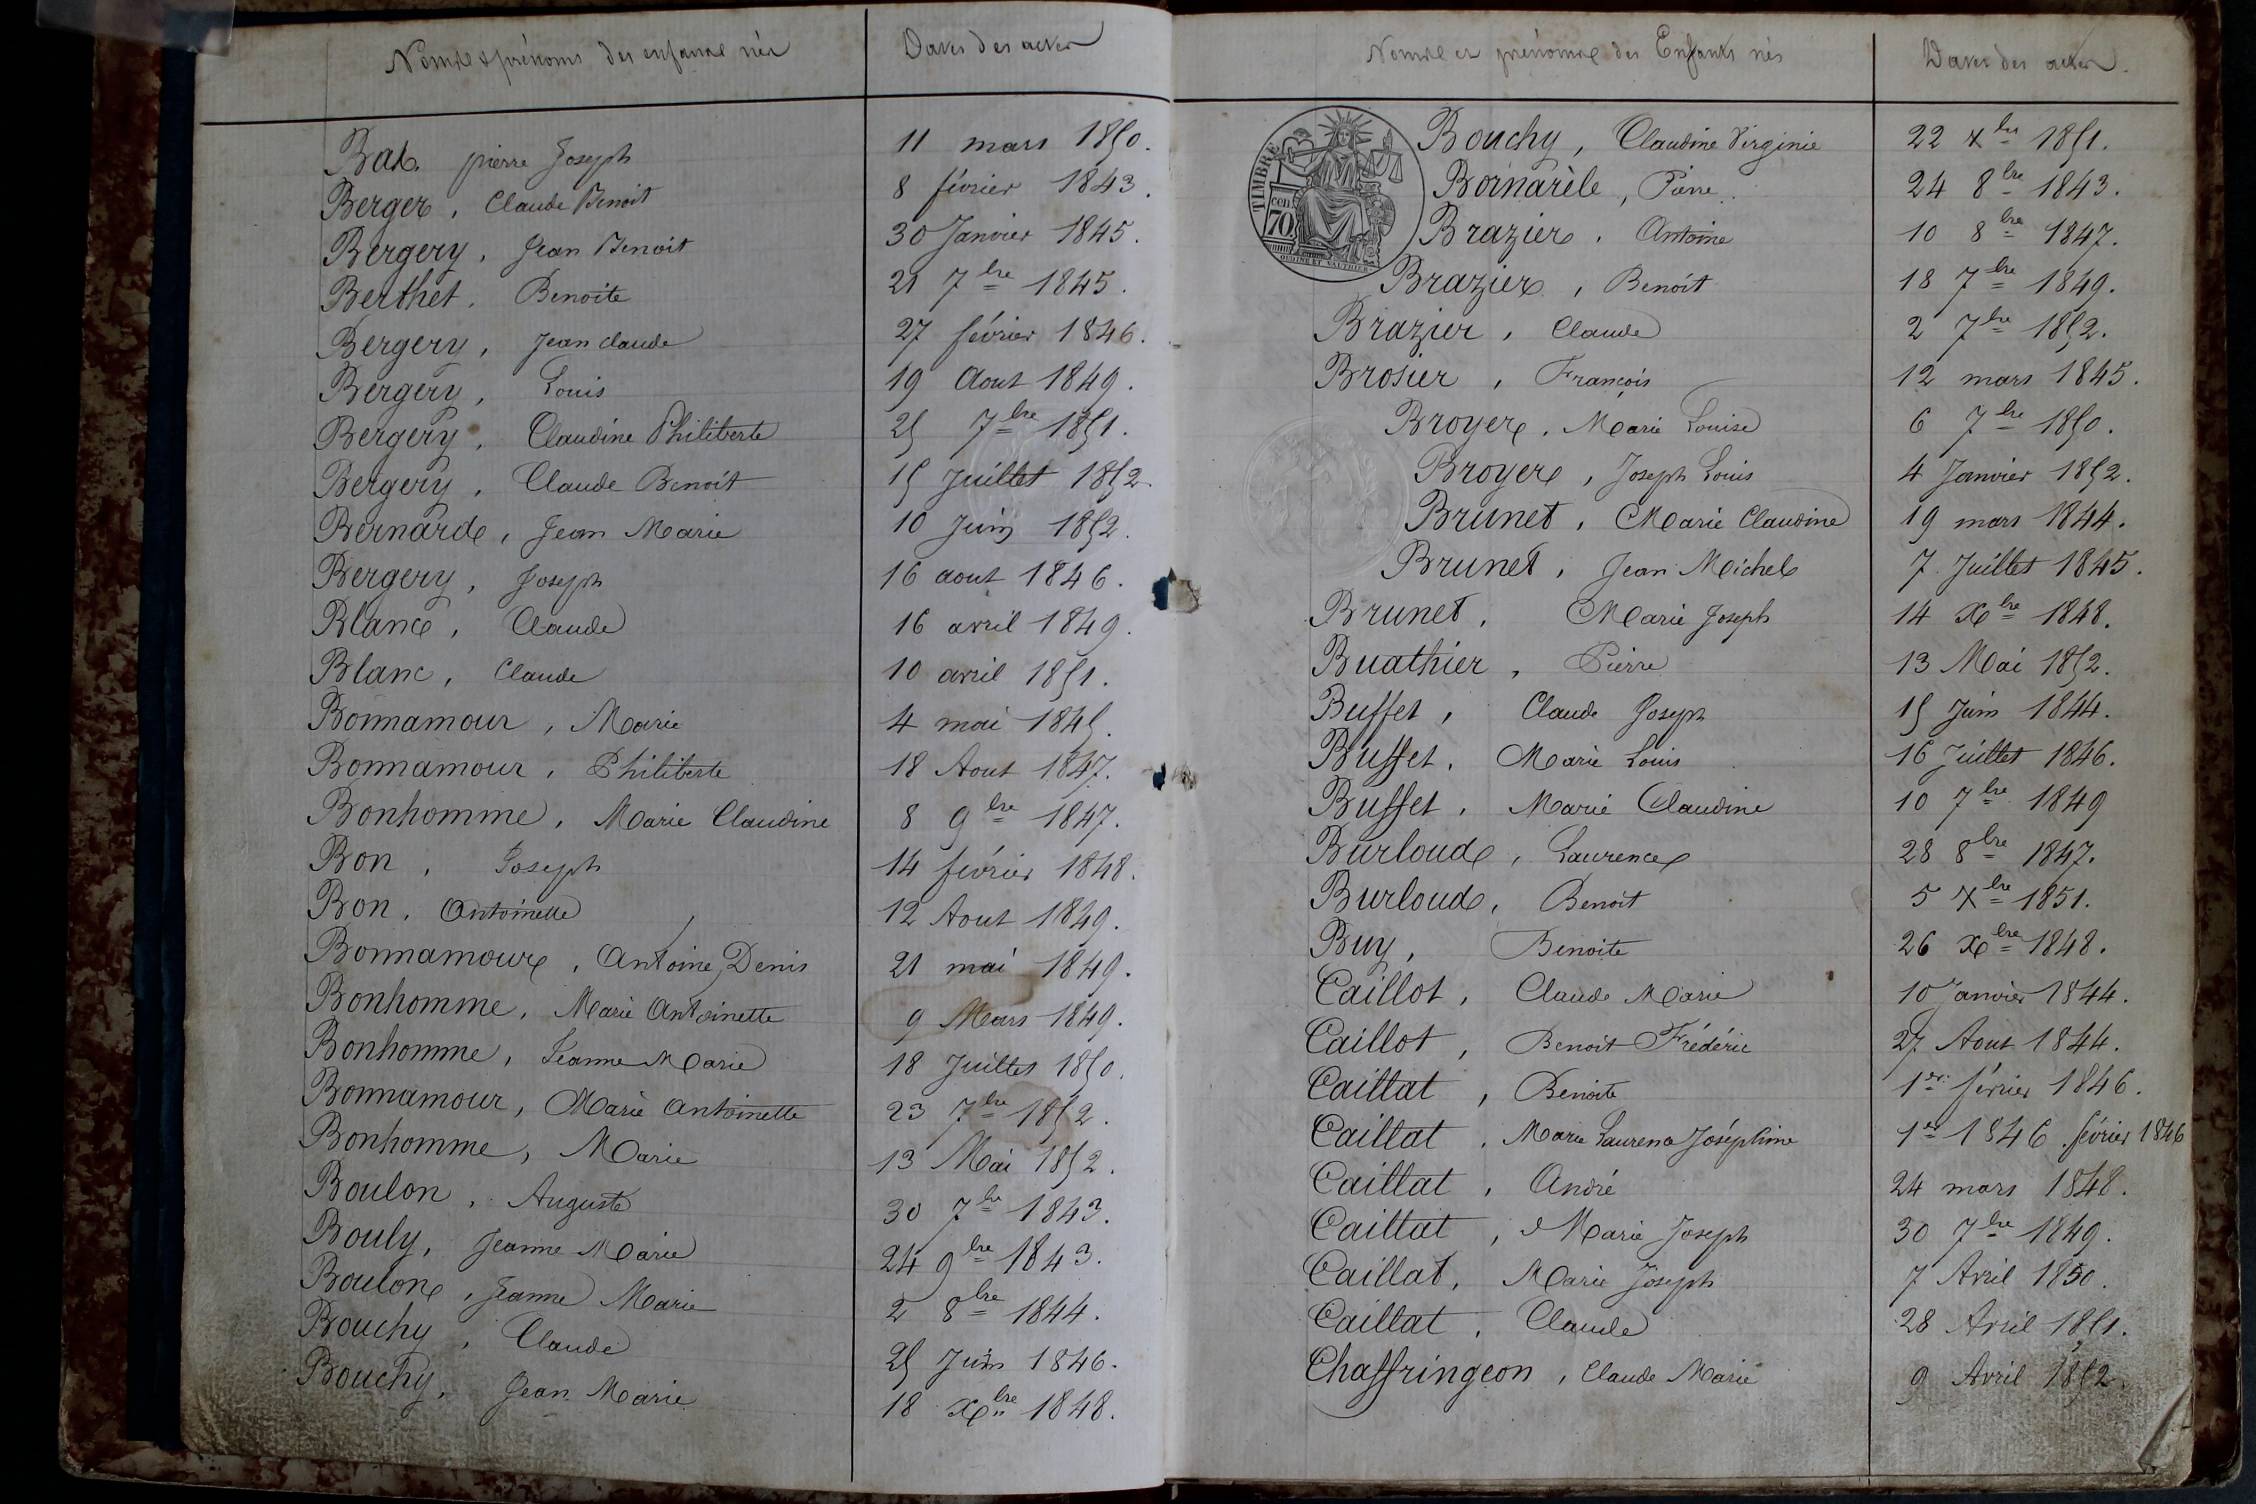 Noms & prénoms des enfants nés Dates des actes
Bal pierre Joseph 11 mars 1850.
Berger, Claude Benoit 8 février 1843.
Bergery, Jean Benoit 30 Janvier 1845.
Berthet, Benoite 21 7bre 1845.
Bergery, Jean claude 27 février 1846.
Bergery, Louis 19 Aout 1849.
Bergery, Claudine Philiberte 25 7bre 1851.
Bergery, Claude Benoit 15 Juillet 1852.
Bernard, Jean Marie 10 Juin 1852.
Bergery, Joseph 16 aout 1846.
Blanc, Claude 16 avril 1849.
Blanc, Claude 10 avril 1851.
Bonnamour, Marie 4 mai 1845.
Bonnamour, Philiberte 18 Aout 1847.
Bonhomme, Marie Claudine 8 9bre 1847.
Bon, Joseph 14 février 1848.
Bon, Antoinette 12 Aout 1849.
Bonnamour, Antoine Denis 21 mai 1849.
Bonhomme, Marie Antoinette 9 Mars 1849.
Bonhomme, Jeanne Marie 18 Juillet 1850.
Bonnamour, Marie Antoinette 23 7bre 1852.
Bonhomme, Marie 13 Mai 1852.
Boulon, Auguste 30 7bre 1843.
Bouly, Jeanne Marie 24 9bre 1843.
Boulon, Jeanne Marie 2 8bre 1844.
Bouchy, Claude 25 Juin 1846.
Bouchy, Jean Marie 18 Xbre 1848.
Noms et prénoms des Enfants nés Dates des actes.
TIMBRE
cen
70
OUDINÉ ET VAUTHIER
Bouchy, Claudine Virginie 22 Xbre 1851.
Boinarèle, Pierre 24 8bre 1843.
Brazier, Antoine 10 8bre 1847.
Brazier, Benoit 18 7bre 1849.
Brazier, Claude 2 7bre 1852.
Brosier, François 12 mars 1845.
Broyer, Marie Louise 6 7bre 1850.
Broyer, Joseph Louis 4 Janvier 1852.
Brunet, Marie Claudine 19 mars 1844.
Brunet, Jean Michel 7 Juillet 1845.
Brunet, Marie Joseph 14 Xbre 1848.
Buathier, Pierre 13 Mai 1852.
Buffet, Claude Joseph 15 Juin 1844.
Buffet, Marie Louis 16 Juillet 1846.
Buffet, Marie Claudine 10 7bre 1849
Burloud, Laurence 28 8bre 1847.
Burloud, Benoit 5 Xbre 1851.
Buy, Benoite 26 Xbre 1848.
Caillot, Claude Marie 10 Janvier 1844.
Caillot, Benoit Frédéric 27 Aout 1844.
Caillat, Benoite 1er février 1846.
Caillat, Marie Laurence Joséphine 1er 1846 février 1846
Caillat, André 24 mars 1848.
Caillat, Marie Joseph 30 7bre 1849.
Caillat, Marie Joseph 7 Avril 1850.
Caillat, Claude 28 Avril 1851.
Chaffringeon, Claude Marie 9 Avril 1852.